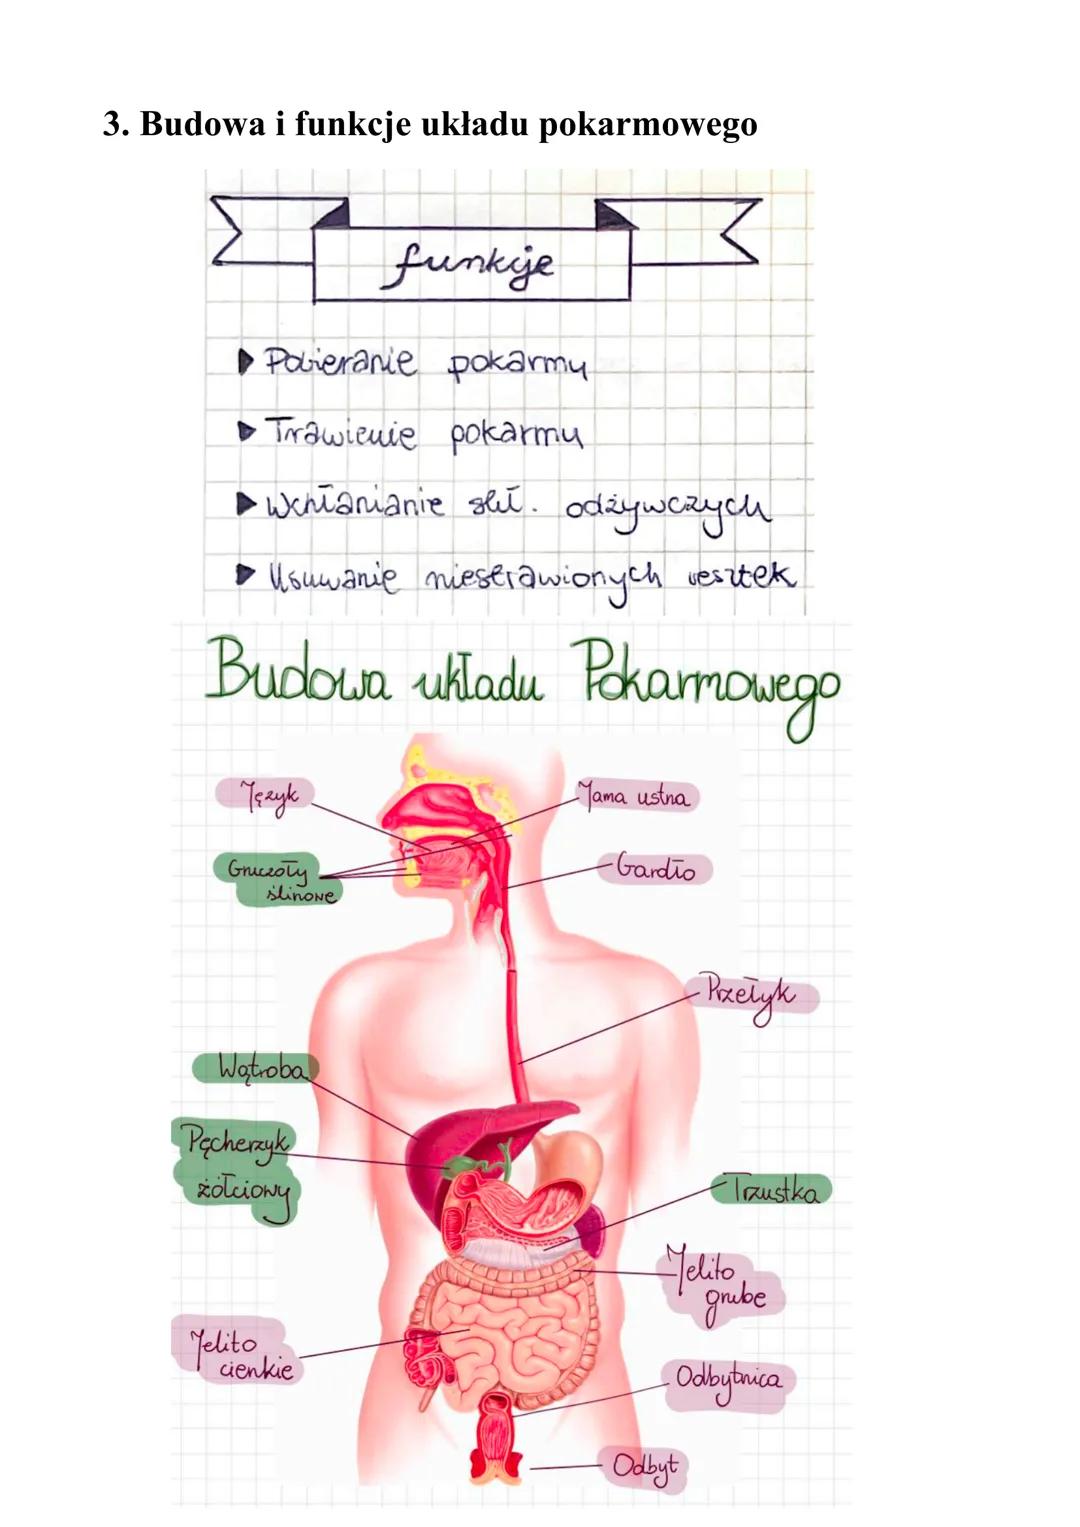 3. Budowa i funkcje układu pokarmowego
funkcje
Pobieranie pokarmu
Trawienie pokarmu
Wchłanianie skł. odżywczych
Usuwanie niestrawionych resztek
Budowa układu Pokarmowego
Język
Jama ustna
Gruczoły
ślinowe
Gardło
Przełyk
Wątroba
Pęcherzyk
żółciowy
Trzustka
Jelito
grube
Jelito
cienkie
Odbytnica
Odbyt